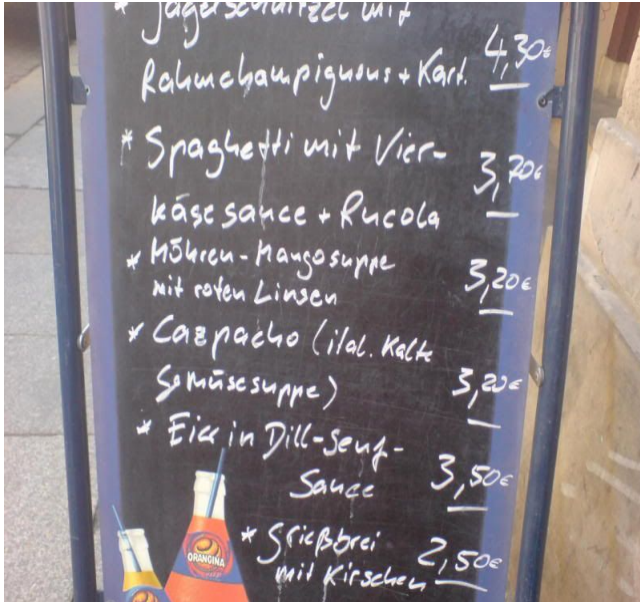 * Jägerschnitzel mit
Rahmchampignons + Kart. 4,30€
* Spaghetti mit Vier-
käsesauce + Rucola 3,70€
* Möhren-Mangosuppe
mit roten Linsen 3,20€
* Gazpacho (ital. Kalte
Gemüsesuppe) 3,20€
* Eier in Dill-Senf-
Sauce 3,50€
* Grießbrei
mit Kirschen 2,50€
ORANGINA